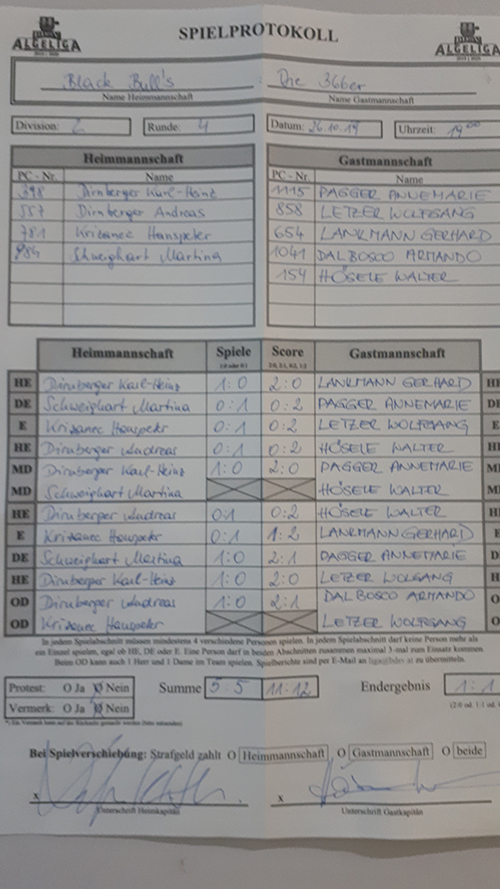 ALGELIGA SPIELPROTOKOLL ALGELIGA
Black Bull's : Die 366er
Name Heimmannschaft Name Gastmannschaft
Division: 2 Runde: 4 Datum: 26.10.19 Uhrzeit: 19 00
Heimmannschaft Gastmannschaft
PC - Nr. Name PC - Nr. Name
398 Dirnberger Karl-Heinz 1115 PAGGER ANNEMARIE
557 Dirnberger Andreas 858 LETZER WOLFGANG
781 Krizanec Hanspeter 654 LANKMANN GERHARD
984 Schweighart Martina 1041 DAL BOSCO ARMANDO
154 HÖSELE WALTER
Heimmannschaft Spiele Score Gastmannschaft
1:0 oder 0:1 2:0, 2:1, 0:2, 1:2
HE Dirnberger Karl-Heinz 1:0 2:0 LANKMANN GERHARD HE
DE Schweighart Martina 0:1 0:2 PAGGER ANNEMARIE DE
E Krizanec Hanspeter 0:1 0:2 LETZER WOLFGANG E
HE Dirnberger Andreas 0:1 0:2 HÖSELE WALTER HE
MD Dirnberger Karl-Heinz 1:0 2:0 PAGGER ANNEMARIE MD
MD Schweighart Martina HÖSELE WALTER MD
HE Dirnberger Andreas 0:1 0:2 HÖSELE WALTER HE
E Krizanec Hanspeter 0:1 1:2 LANKMANN GERHARD E
DE Schweighart Martina 1:0 2:1 PAGGER ANNEMARIE D
HE Dirnberger Karl-Heinz 1:0 2:0 LETZER WOLFGANG HE
OD Dirnberger Andreas 1:0 2:1 DAL BOSCO ARMANDO O
OD Krizanec Hanspeter LETZER WOLFGANG O
In jedem Spielabschnitt müssen mindestens 4 verschiedene Personen spielen. In jedem Spielabschnitt darf keine Person mehr als
ein Einzel spielen, egal ob HE, DE oder E. Eine Person darf in beiden Abschnitten zusammen maximal 3-mal zum Einsatz kommen
Beim OD kann auch 1 Herr und 1 Dame im Team spielen. Spielberichte sind per E-Mail an zu übermitteln.
Protest: O Ja O Nein Summe 5:5 11:12 Endergebnis 1:1
Vermerk: O Ja O Nein
Bei Spielverschiebung: Strafgeld zahlt O Heimmannschaft O Gastmannschaft O beide
x x
Unterschrift Heimkapitän Unterschrift Gastkapitän